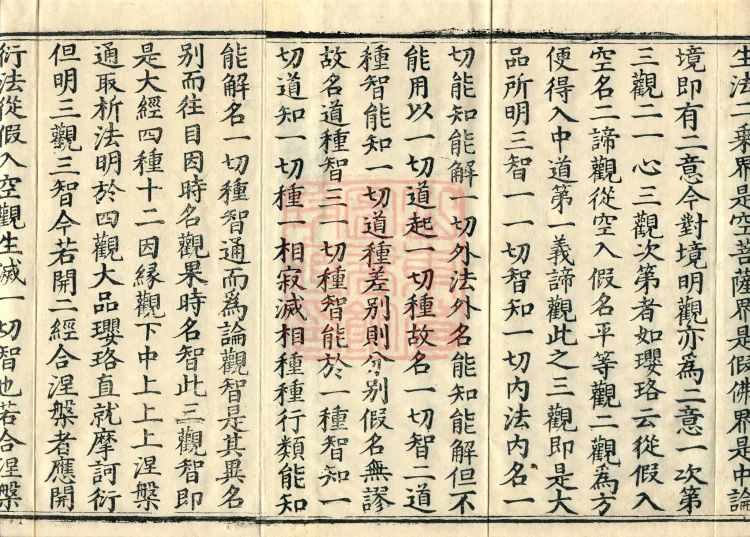 生法二乘界是空菩薩界是假佛界是中論
境即有二意今對境明觀亦為二意一次第
三觀二一心三觀次第者如瓔珞云從假入
空名二諦觀從空入假名平等觀二觀為方
便得入中道第一義諦觀此之三觀即是大
品所明三智一一切智知一切內法內名一
切能知能解一切外法外名能知能解但不
能用以一切道起一切種故名一切智二道
種智能知一切道種差別則分別假名無謬
故名道種智三一切種智能於一種智知一
切道知一切種一相寂滅相種種行類能知
能解名一切種智通而為論觀智是其異名
別而往目因時名觀果時名智此三觀智即
是大經四種十二因緣觀下中上上上涅槃
通取析法明於四觀大品瓔珞直就摩訶衍
但明三觀三智今若開二經合涅槃者應開
衍法從假入空觀生滅一切智也若合涅槃